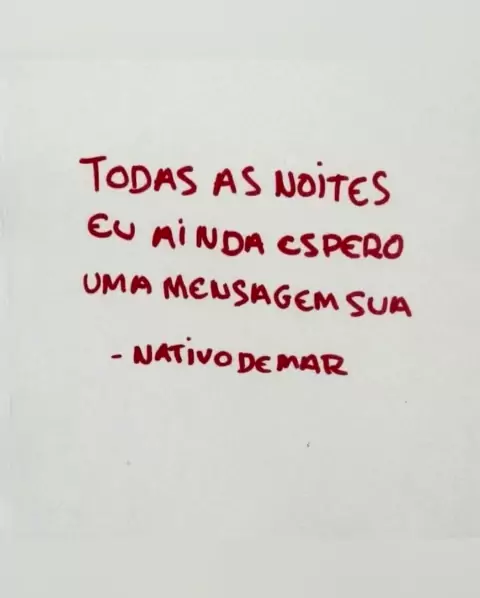 TODAS AS NOITES
EU AINDA ESPERO
UMA MENSAGEM SUA
- NATIVODEMAR